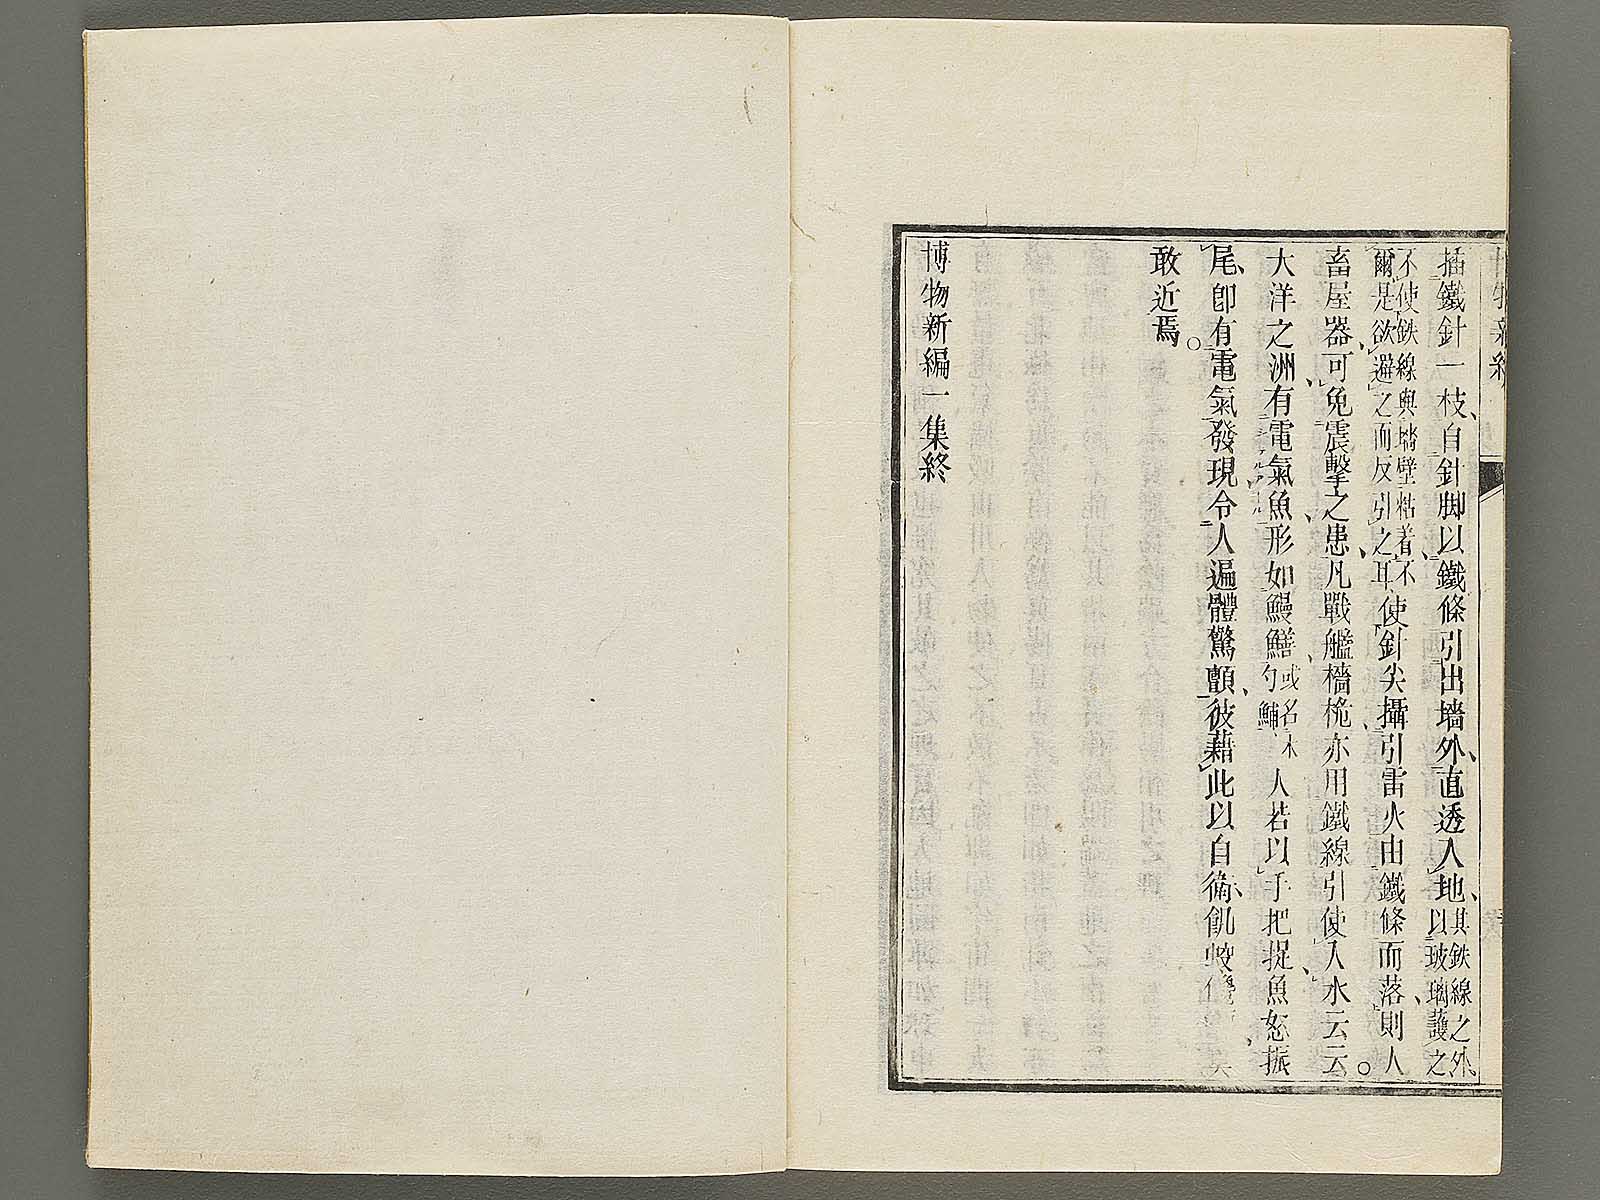 插鐵針一枝、自針脚以鐵條引出墻外、直透入地、其鉄線之外、以玻璃護之
不使鉄線與墻壁粘着、不爾是欲避之而反引之耳、使針尖攝引雷火由鐵條而落、則人
畜屋器、可免震擊之患、凡戰艦檣桅亦用鐵線引使入水云云。
大洋之洲、有電氣魚、形如鰻鱔、或名木勺鯆、人若以手把捉、魚怒振
尾、卽有電氣發現、令人遍體驚顫、彼藉此以自衛、飢
敢近焉。
博物新編一集終